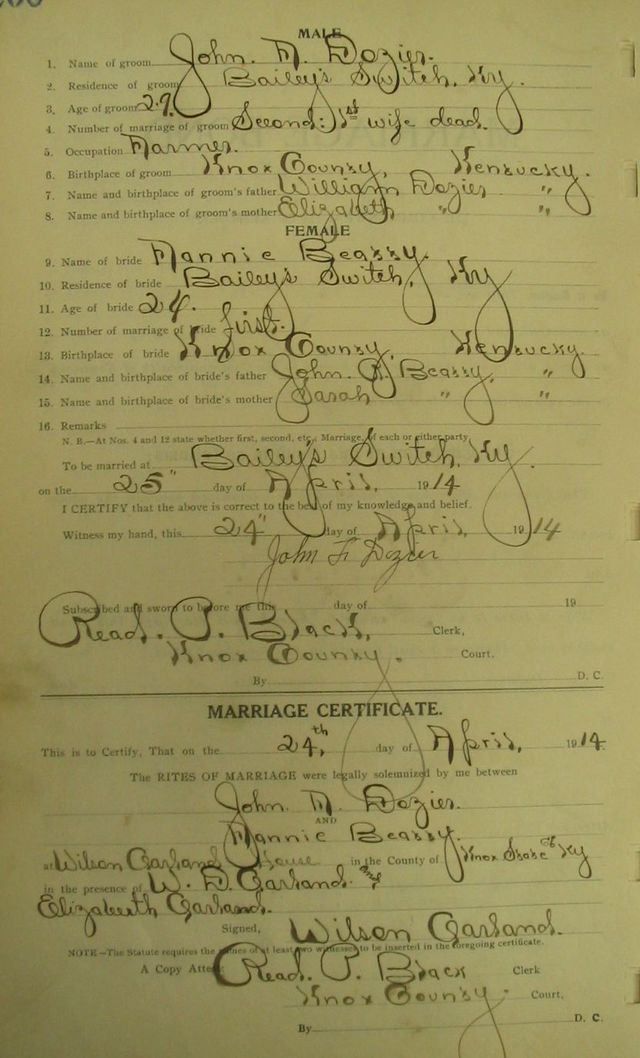 MALE
1. Name of groom John. F. Dozier.
2. Residence of groom Bailey's Switch, Ky.
3. Age of groom 29.
4. Number of marriage of groom Second: 1st wife dead.
5. Occupation Farmer.
6. Birthplace of groom Knox County, Kentucky.
7. Name and birthplace of groom's father William Dozier "
8. Name and birthplace of groom's mother Elizabeth " "
FEMALE
9. Name of bride Fannie Beatty.
10. Residence of bride Bailey's Switch, Ky
11. Age of bride 24.
12. Number of marriage of bride first.
13. Birthplace of bride Knox County, Kentucky.
14. Name and birthplace of bride's father John. Beatty, "
15. Name and birthplace of bride's mother Sarah " "
16. Remarks
N. B.—At Nos. 4 and 12 state whether first, second, etc., Marriage, of each or either party
To be married at Bailey's Switch, Ky.
on the 25" day of April, 1914
I CERTIFY that the above is correct to the best of my knowledge and belief.
Witness my hand, this 24" day of April, 1914
John F. Dozier
Subscribed and sworn to before me this day of 19
Read. P. Black, Clerk,
Knox County. Court.
By D. C.
MARRIAGE CERTIFICATE.
This is to Certify, That on the 24th, day of April, 1914
The RITES OF MARRIAGE were legally solemnized by me between
John. F. Dozier.
AND
Fannie Beatty.
at Wilson Garland House in the County of Knox State of Ky
in the presence of W. D. Garland &
Elizabeth Garland.
Signed, Wilson Garland.
NOTE—The Statute requires the names of at least two witnesses to be inserted in the foregoing certificate.
A Copy Attest Read. P. Black Clerk
Knox County. Court,
By D. C.